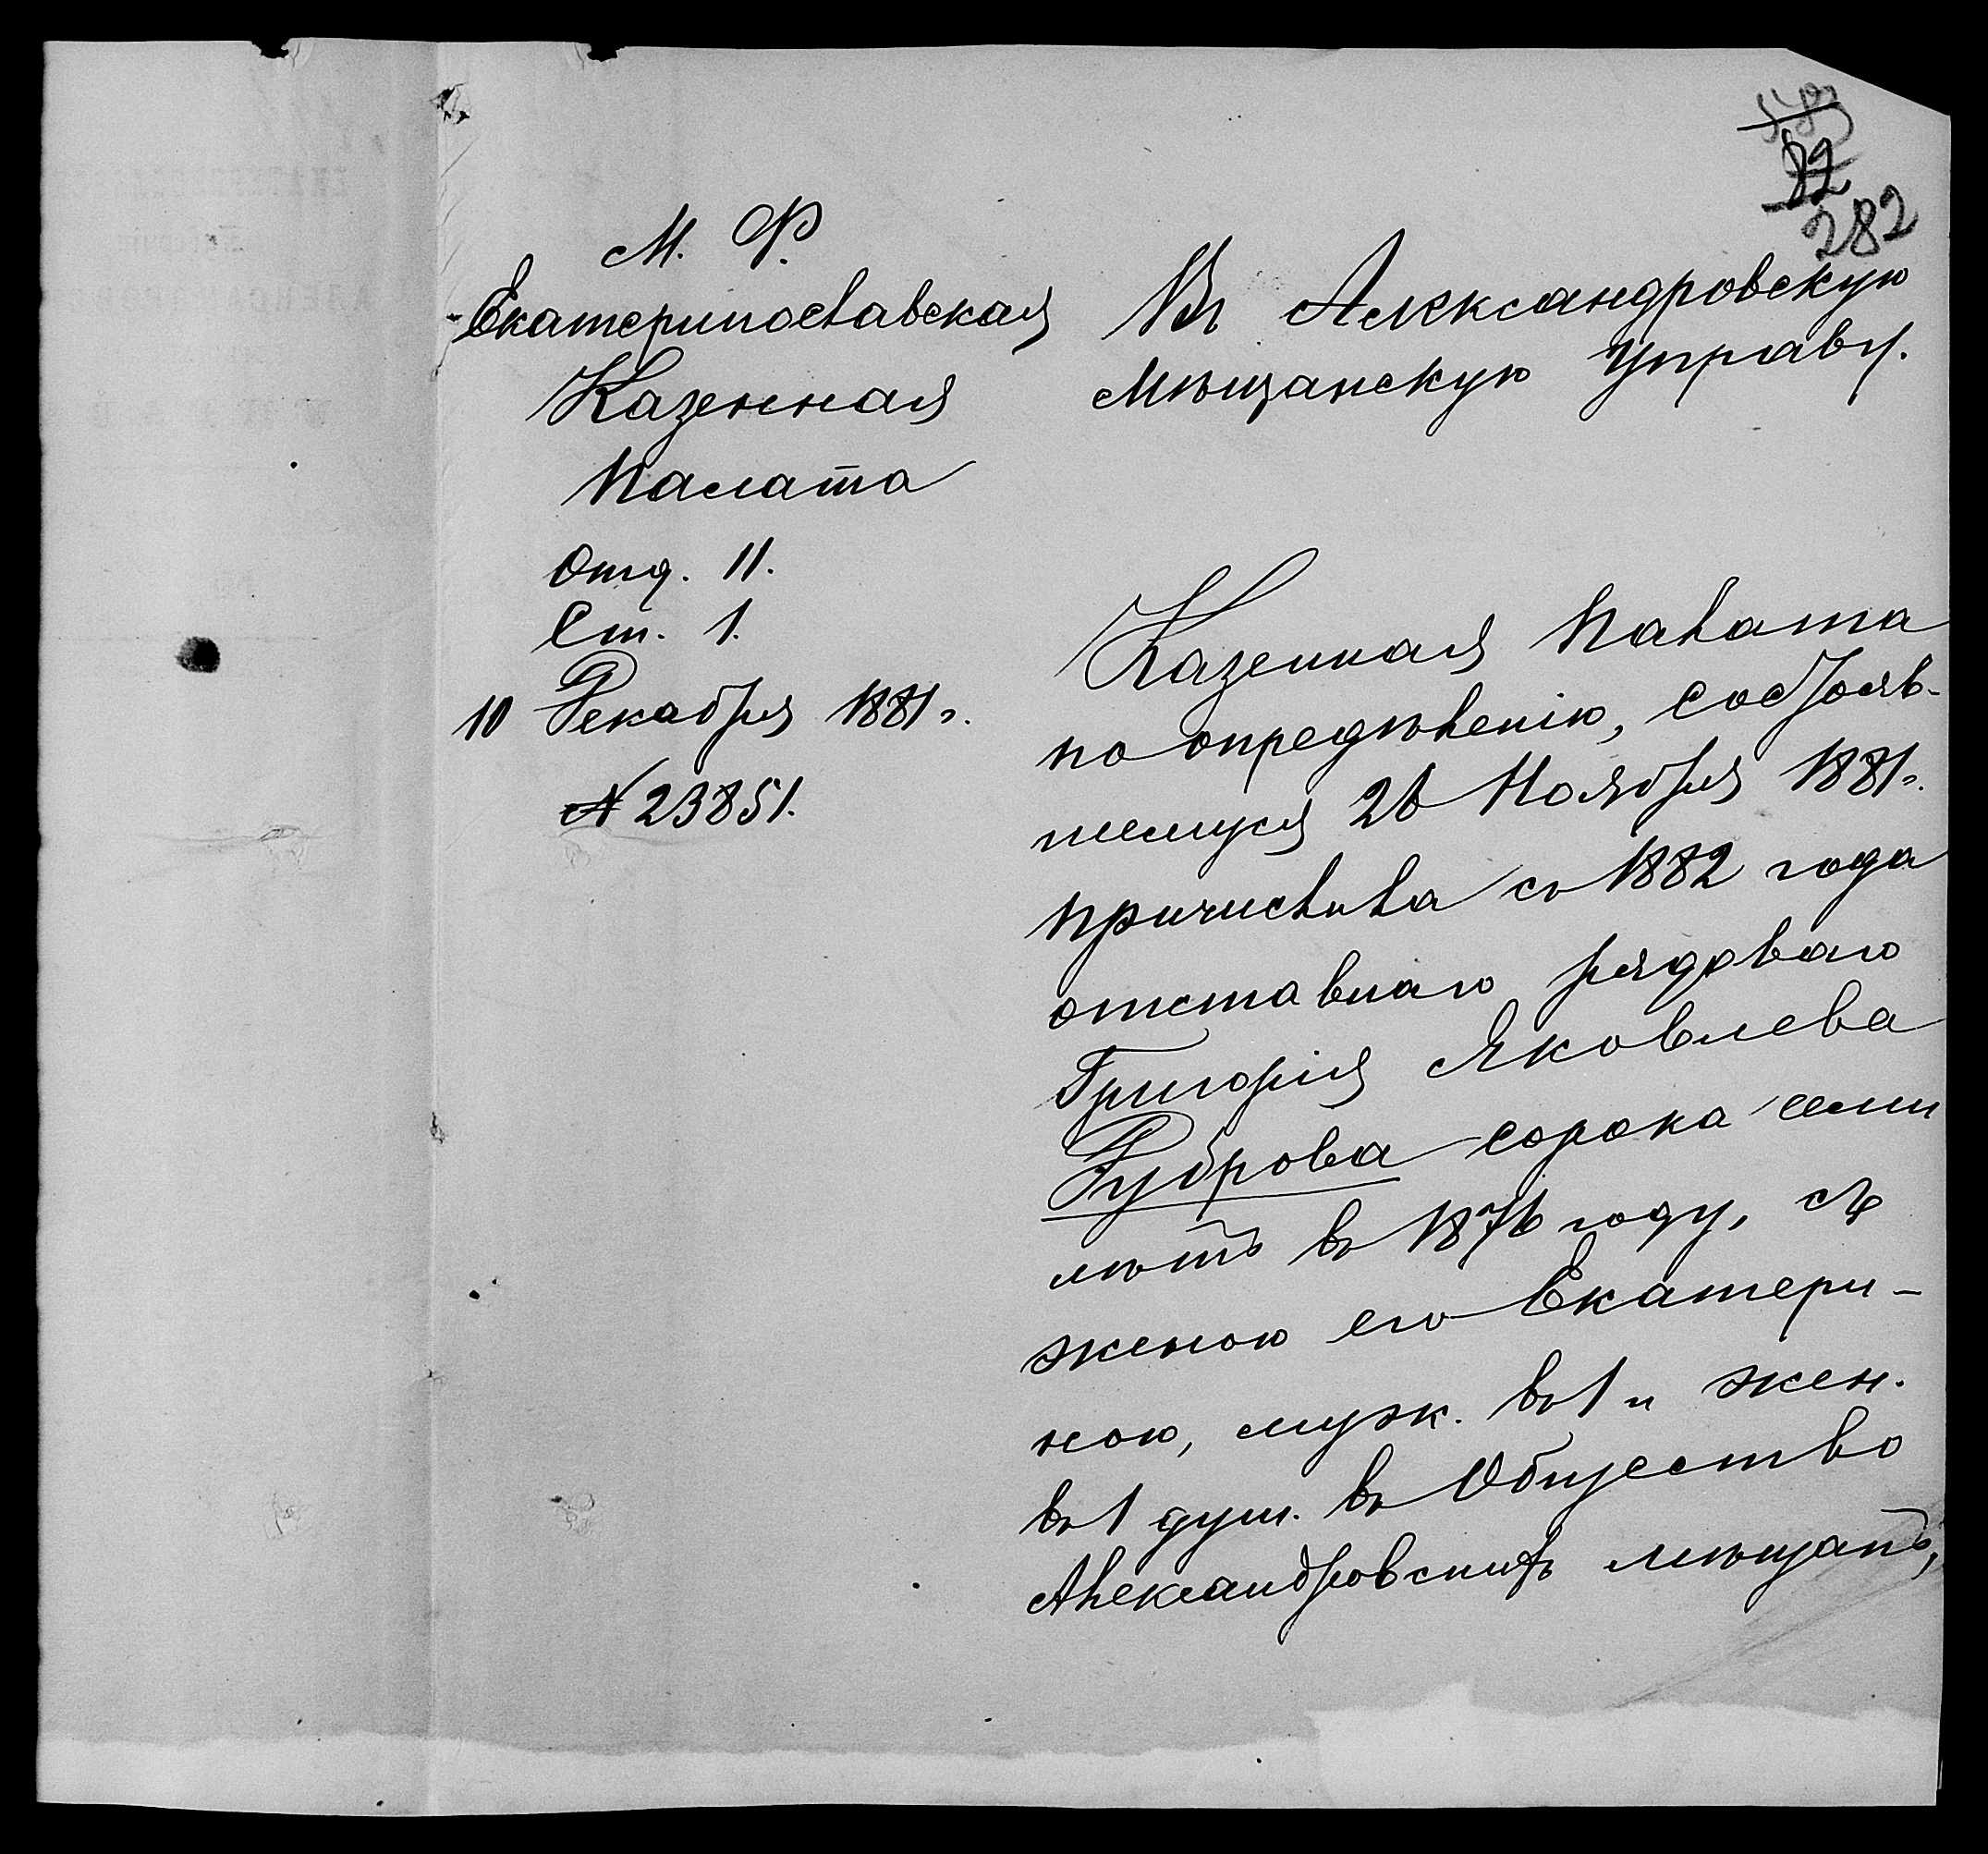 282
М. Ф.
Екатеринославская
Казенная
Палата
Отд. II.
Ст. 1.
10 Декабря 1881 г.
№ 23851.
Въ Александровскую
Мѣщанскую Управу.
Казенная Палата
по опредѣленію, состояв-
шемуся 26 Ноября 1881 г.
причислила съ 1882 года
отставнаго рядоваго
Григорія Яковлева
Дуброва сорока семи
лѣтъ въ 1876 году, съ
женою его Екатери-
ною, муж. въ 1 и жен.
въ 1 душ. въ Общество
Александровскихъ мѣщанъ,